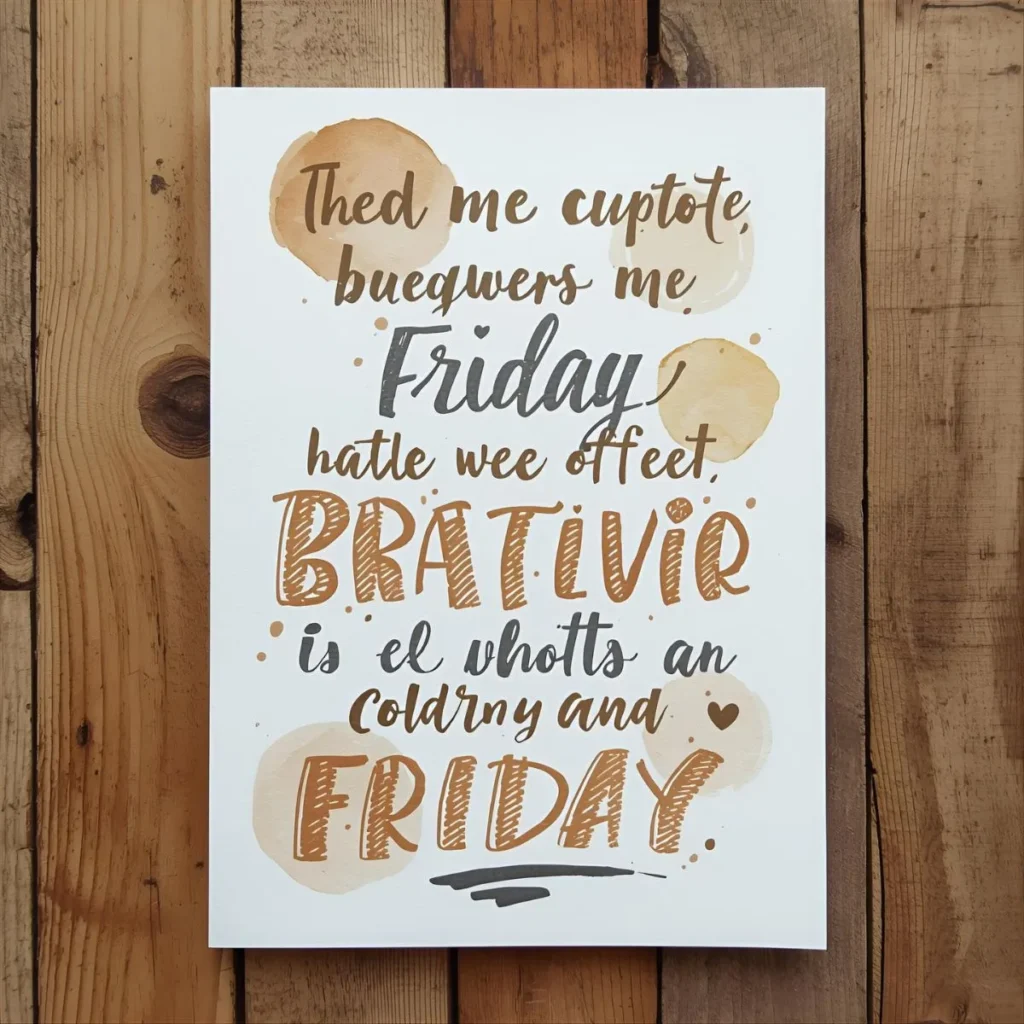 Thed me cuptote,
bueqwers me
Friday
hatle wee offeet,
BRATIVIR
is el vhotts an
coldrny and
FRIDAY